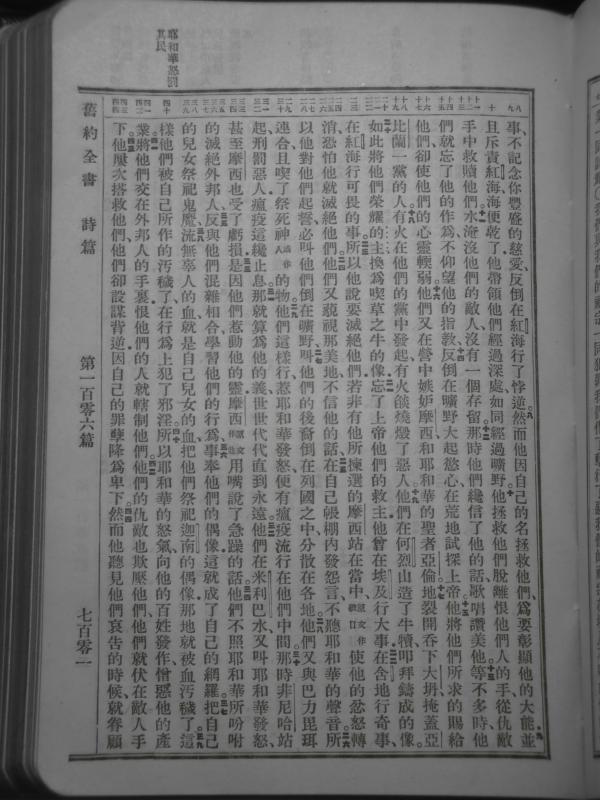 事、不記念你豐盛的慈愛、反倒在紅海行了悖逆。然而他因自己的名拯救他們、爲要彰顯他的大能。並
且斥責紅海、海便乾了。他帶領他們經過深處、如同經過曠野。他拯救他們脫離恨他們人的手、從仇敵
手中救贖他們。水淹沒他們的敵人、沒有一個存留。那時他們纔信了他的話、歌唱讚美他。等不多時、他
們就忘了他的作爲、不仰望他的指教、反倒在曠野大起慾心、在荒地試探上帝。他將他們所求的賜給
他們、卻使他們的心靈輭弱。他們又在營中嫉妒摩西、和耶和華的聖者亞倫。地裂開吞下大坍、掩蓋亞
比蘭一黨的人。有火在他們的黨中發起、有火燄燒燬了惡人。他們在何烈山造了牛犢、叩拜鑄成的像。
如此將他們榮耀的主、換爲喫草之牛的像。忘了上帝他們的救主、他曾在埃及行大事、在含地行奇事、
在紅海行可畏的事。所以他說要滅絕他們、若非有他所揀選的摩西站在當中原文作破口使他的忿怒轉
消、恐怕他就滅絕他們。他們又藐視那美地、不信他的話、在自己帳棚內發怨言、不聽耶和華的聲音。所
以他對他們起誓、必叫他們倒在曠野、叫他們的後裔倒在列國之中、分散在各地。他們又與巴力毘珥
連合、且喫了祭死神或作人的物。他們這樣行、惹耶和華發怒、便有瘟疫流行在他們中間。那時非尼哈站
起刑罰惡人、瘟疫這纔止息。那就算爲他的義、世世代代直到永遠。他們在米利巴水、又叫耶和華發怒、
甚至摩西也受了虧損。是因他們惹動他的靈、摩西原文作他用嘴說了急躁的話。他們不照耶和華所吩咐
的、滅絕外邦人。反與他們混雜相合、學習他們的行爲、事奉他們的偶像、這就成了自己的網羅。把自己
的兒女祭祀鬼魔、流無辜人的血、就是自己兒女的血、把他們祭祀迦南的偶像、那地就被血汚穢了。這
樣、他們被自己所作的汚穢了、在行爲上犯了邪淫。所以耶和華的怒氣向他的百姓發作、憎惡他的產
業、將他們交在外邦人的手裏、恨他們的人就轄制他們。他們的仇敵也欺壓他們、他們就伏在敵人手
下。他屢次搭救他們、他們卻設謀背逆、因自己的罪孽降爲卑下。然而他聽見他們哀告的時候、就眷顧
耶和華怒罰
其民
舊約全書
詩篇
第一百零六篇
七百零一